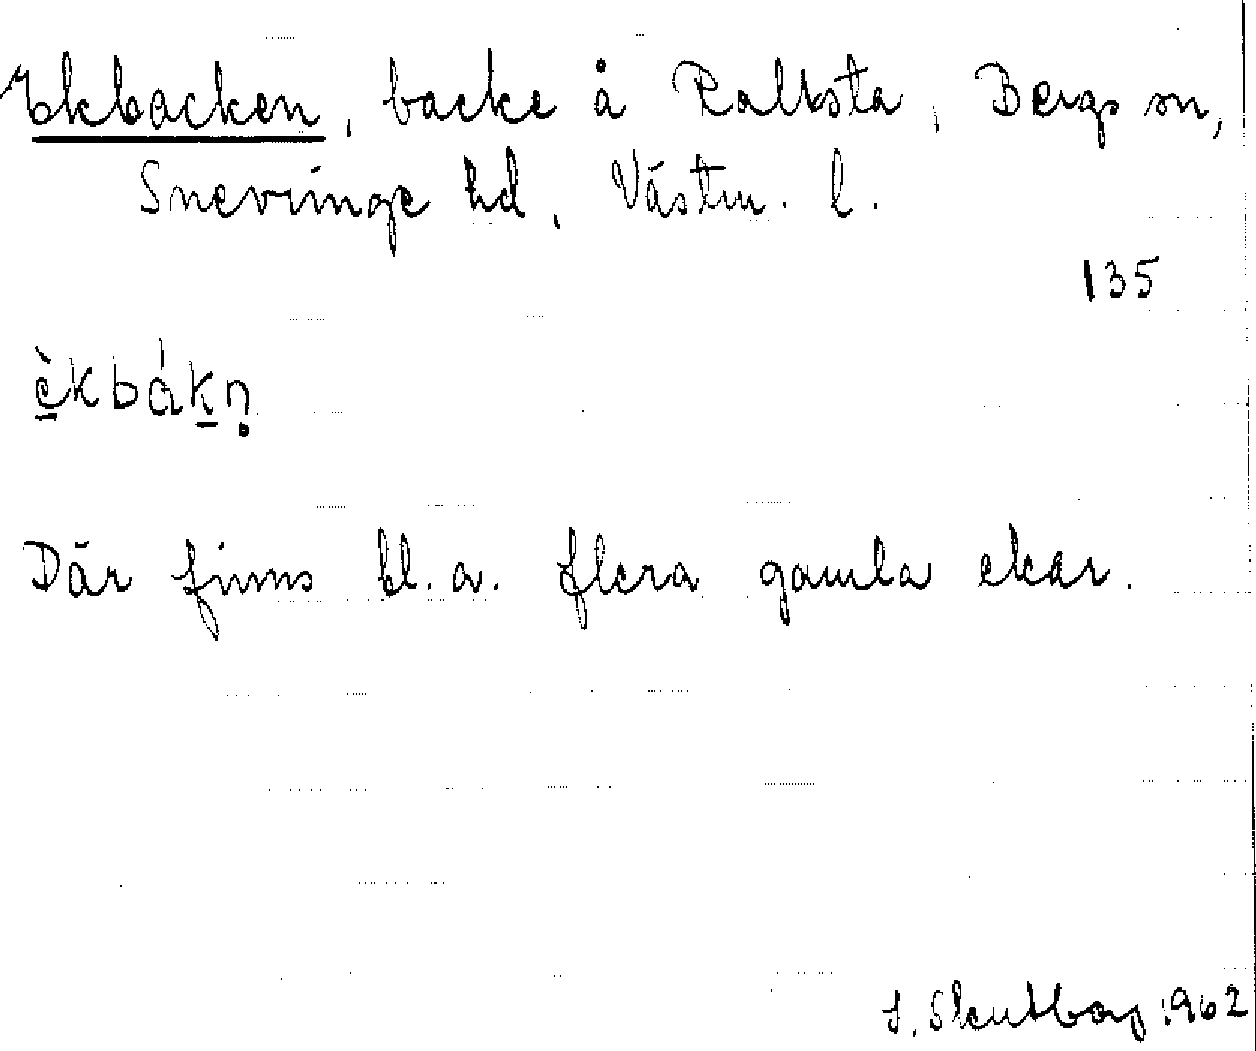 Ekbacken, backe å Rallsta, Bergs sn,
Snevringe hd, Västm. l.
135
è̱kbáḵṇ
Där finns bl. a. flera gamla ekar.
1962